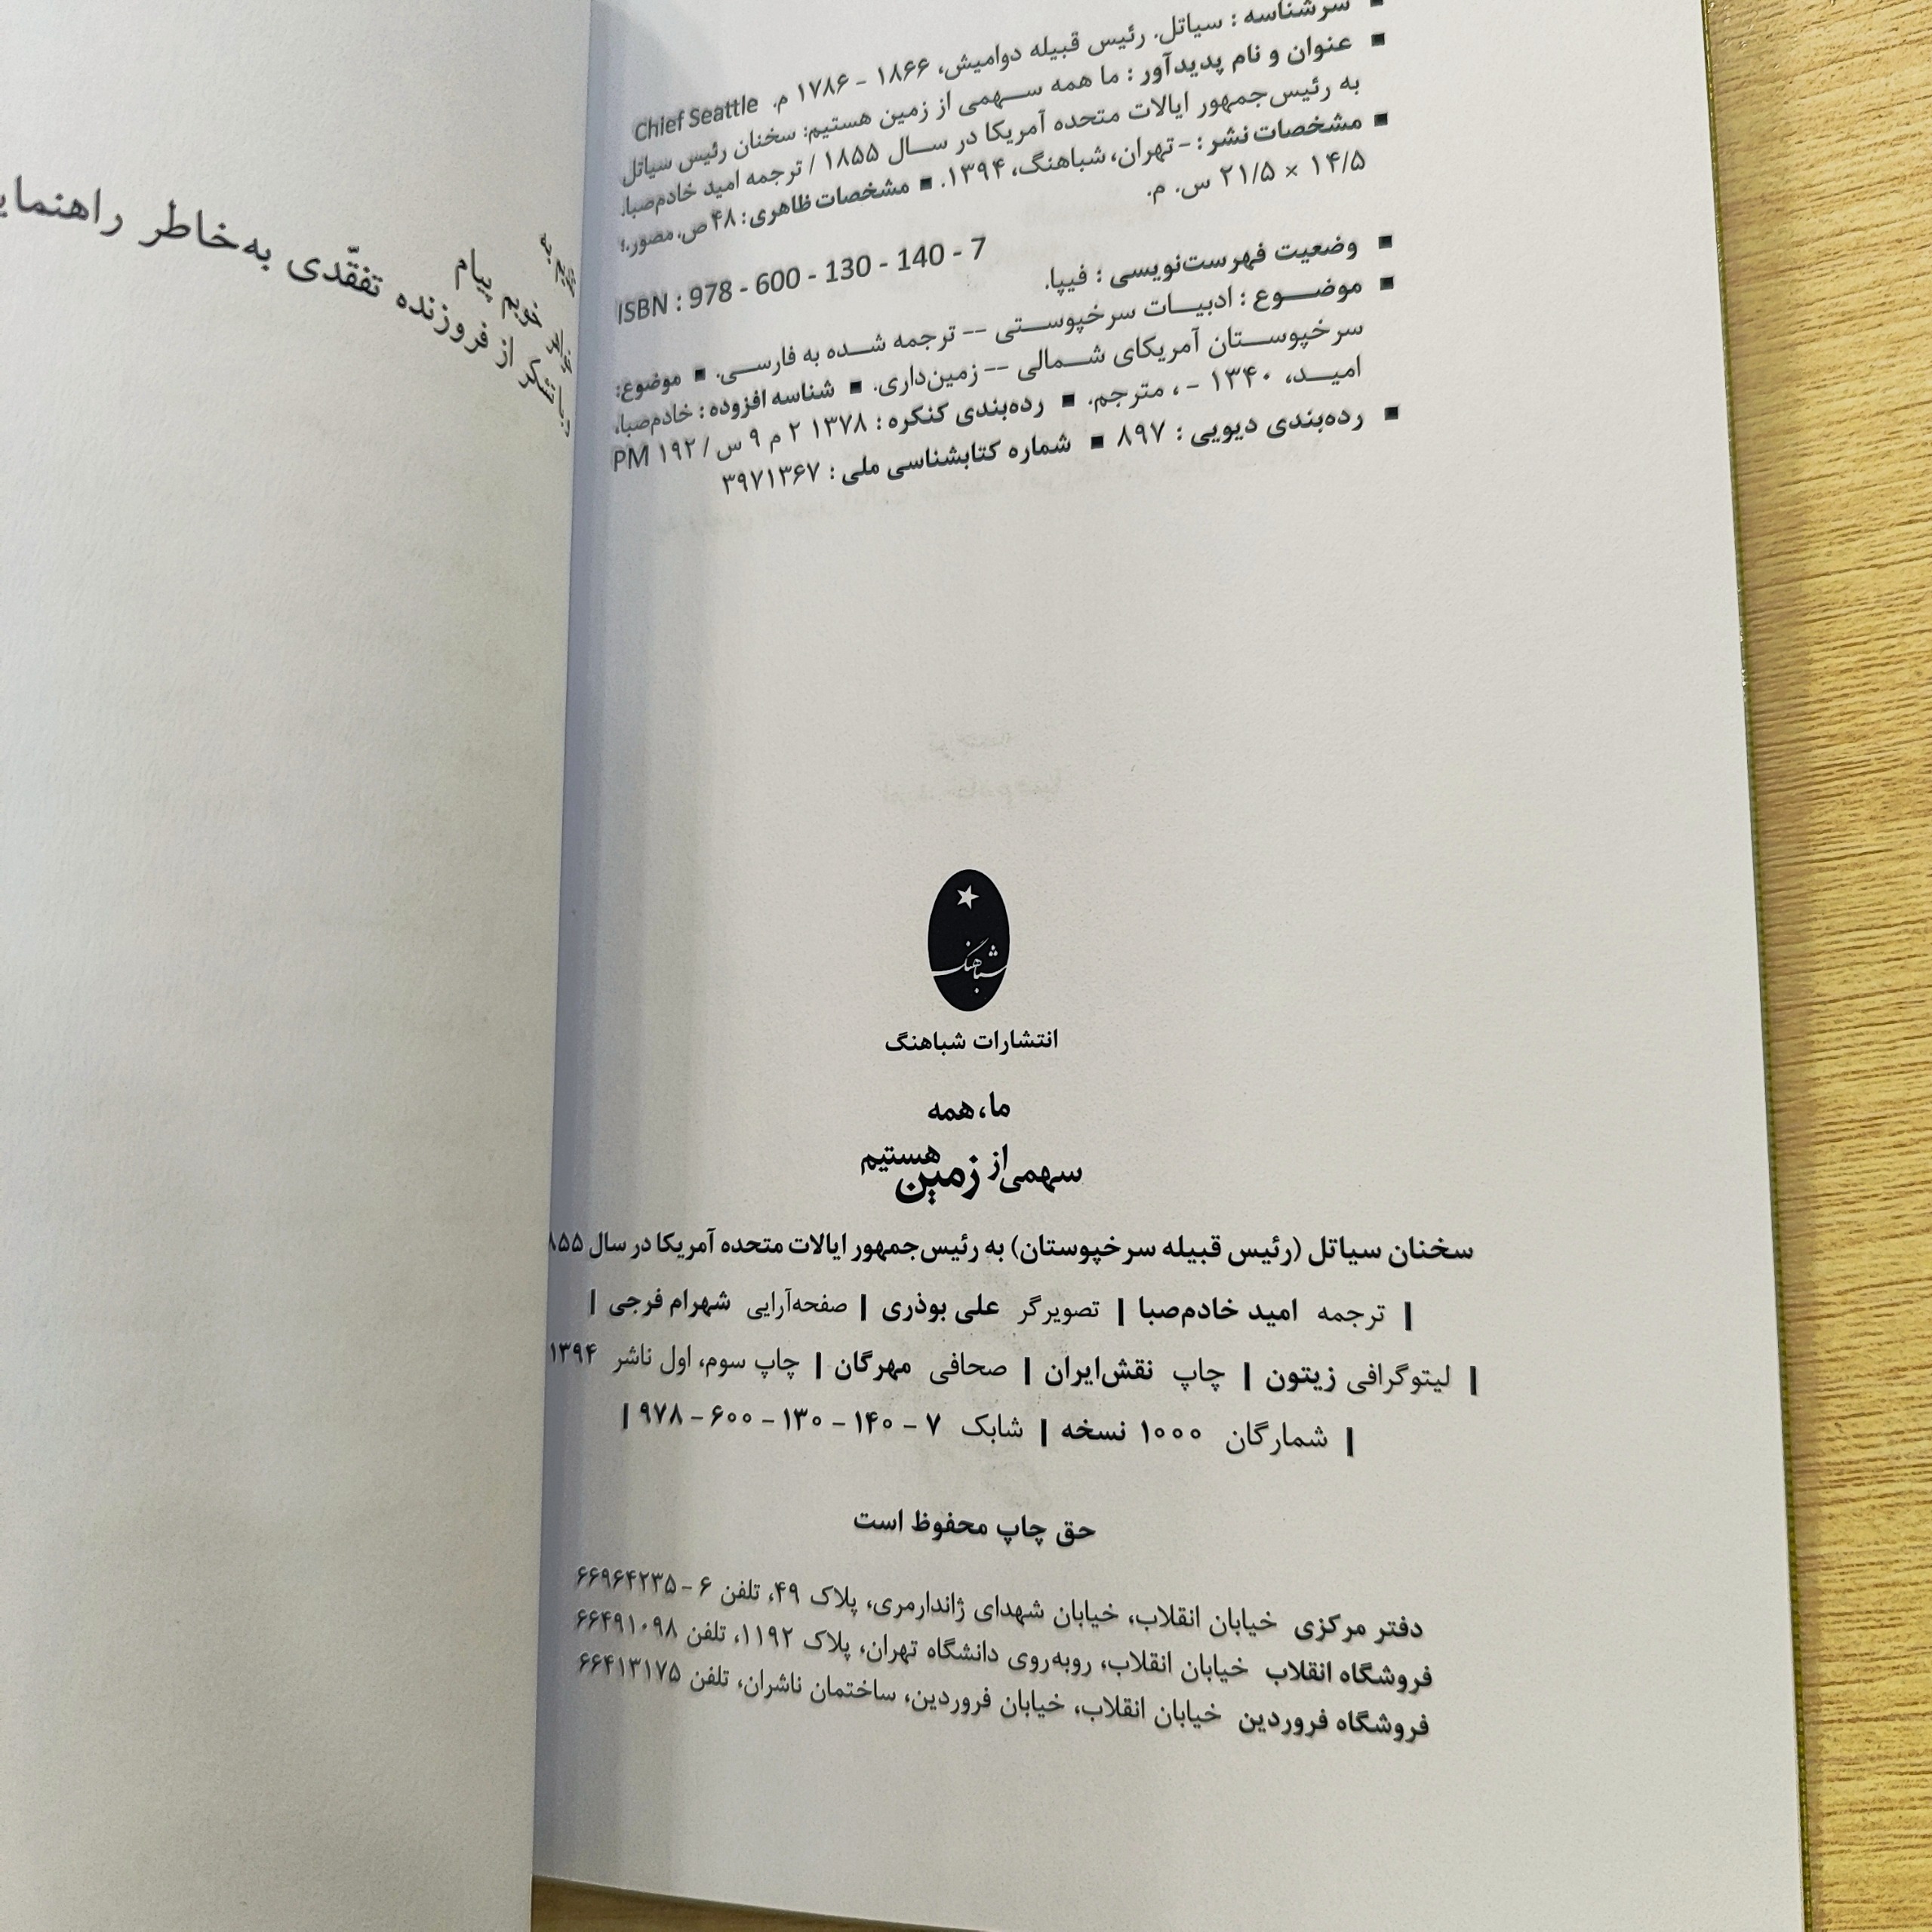 سرشناسه : سیاتل. رئیس قبیله دوامیش، ۱۸۶۶ - ۱۷۸۶ م. Chief Seattle
عنوان و نام پدیدآور : ما همه سهمی از زمین هستیم: سخنان رئیس سیاتل
به رئیس‌جمهور ایالات متحده آمریکا در سال ۱۸۵۵ / ترجمه امید خادم‌صبا.
مشخصات نشر : - تهران، شباهنگ، ۱۳۹۴. ■ مشخصات ظاهری: ۴۸ ص. مصور.؛
۱۴/۵ × ۲۱/۵ س. م.
ISBN : 978 - 600 - 130 - 140 - 7
وضعیت فهرست‌نویسی : فیپا.
موضوع : ادبیات سرخپوستی -- ترجمه شده به فارسی. ■ موضوع:
سرخپوستان آمریکای شمالی -- زمین‌داری. ■ شناسه افزوده : خادم‌صبا،
امید، ۱۳۴۰ - ، مترجم. ■ رده‌بندی کنگره : ۱۳۷۸ ۲ م ۹ س / PM ۱۹۲
رده‌بندی دیویی : ۸۹۷ ■ شماره کتابشناسی ملی : ۳۹۷۱۳۶۷
شباهنگ
انتشارات شباهنگ
ما، همه
سهمی از زمین هستیم
سخنان سیاتل (رئیس قبیله سرخپوستان) به رئیس‌جمهور ایالات متحده آمریکا در سال ۸۵۵
| ترجمه امید خادم‌صبا | تصویرگر علی بوذری | صفحه‌آرایی شهرام فرجی |
| لیتوگرافی زیتون | چاپ نقش‌ایران | صحافی مهرگان | چاپ سوم، اول ناشر ۱۳۹۴
| شمارگان ۱۰۰۰ نسخه | شابک ۷ - ۱۴۰ - ۱۳۰ - ۶۰۰ - ۹۷۸ |
حق چاپ محفوظ است
دفتر مرکزی خیابان انقلاب، خیابان شهدای ژاندارمری، پلاک ۴۹، تلفن ۶ - ۶۶۹۶۴۲۳۵
فروشگاه انقلاب خیابان انقلاب، روبه‌روی دانشگاه تهران، پلاک ۱۱۹۲، تلفن ۶۶۴۹۱۰۹۸
فروشگاه فروردین خیابان انقلاب، خیابان فروردین، ساختمان ناشران، تلفن ۶۶۴۱۳۱۷۵
خوبم پیام
تشکر از فروزنده تفقّدی به‌خاطر